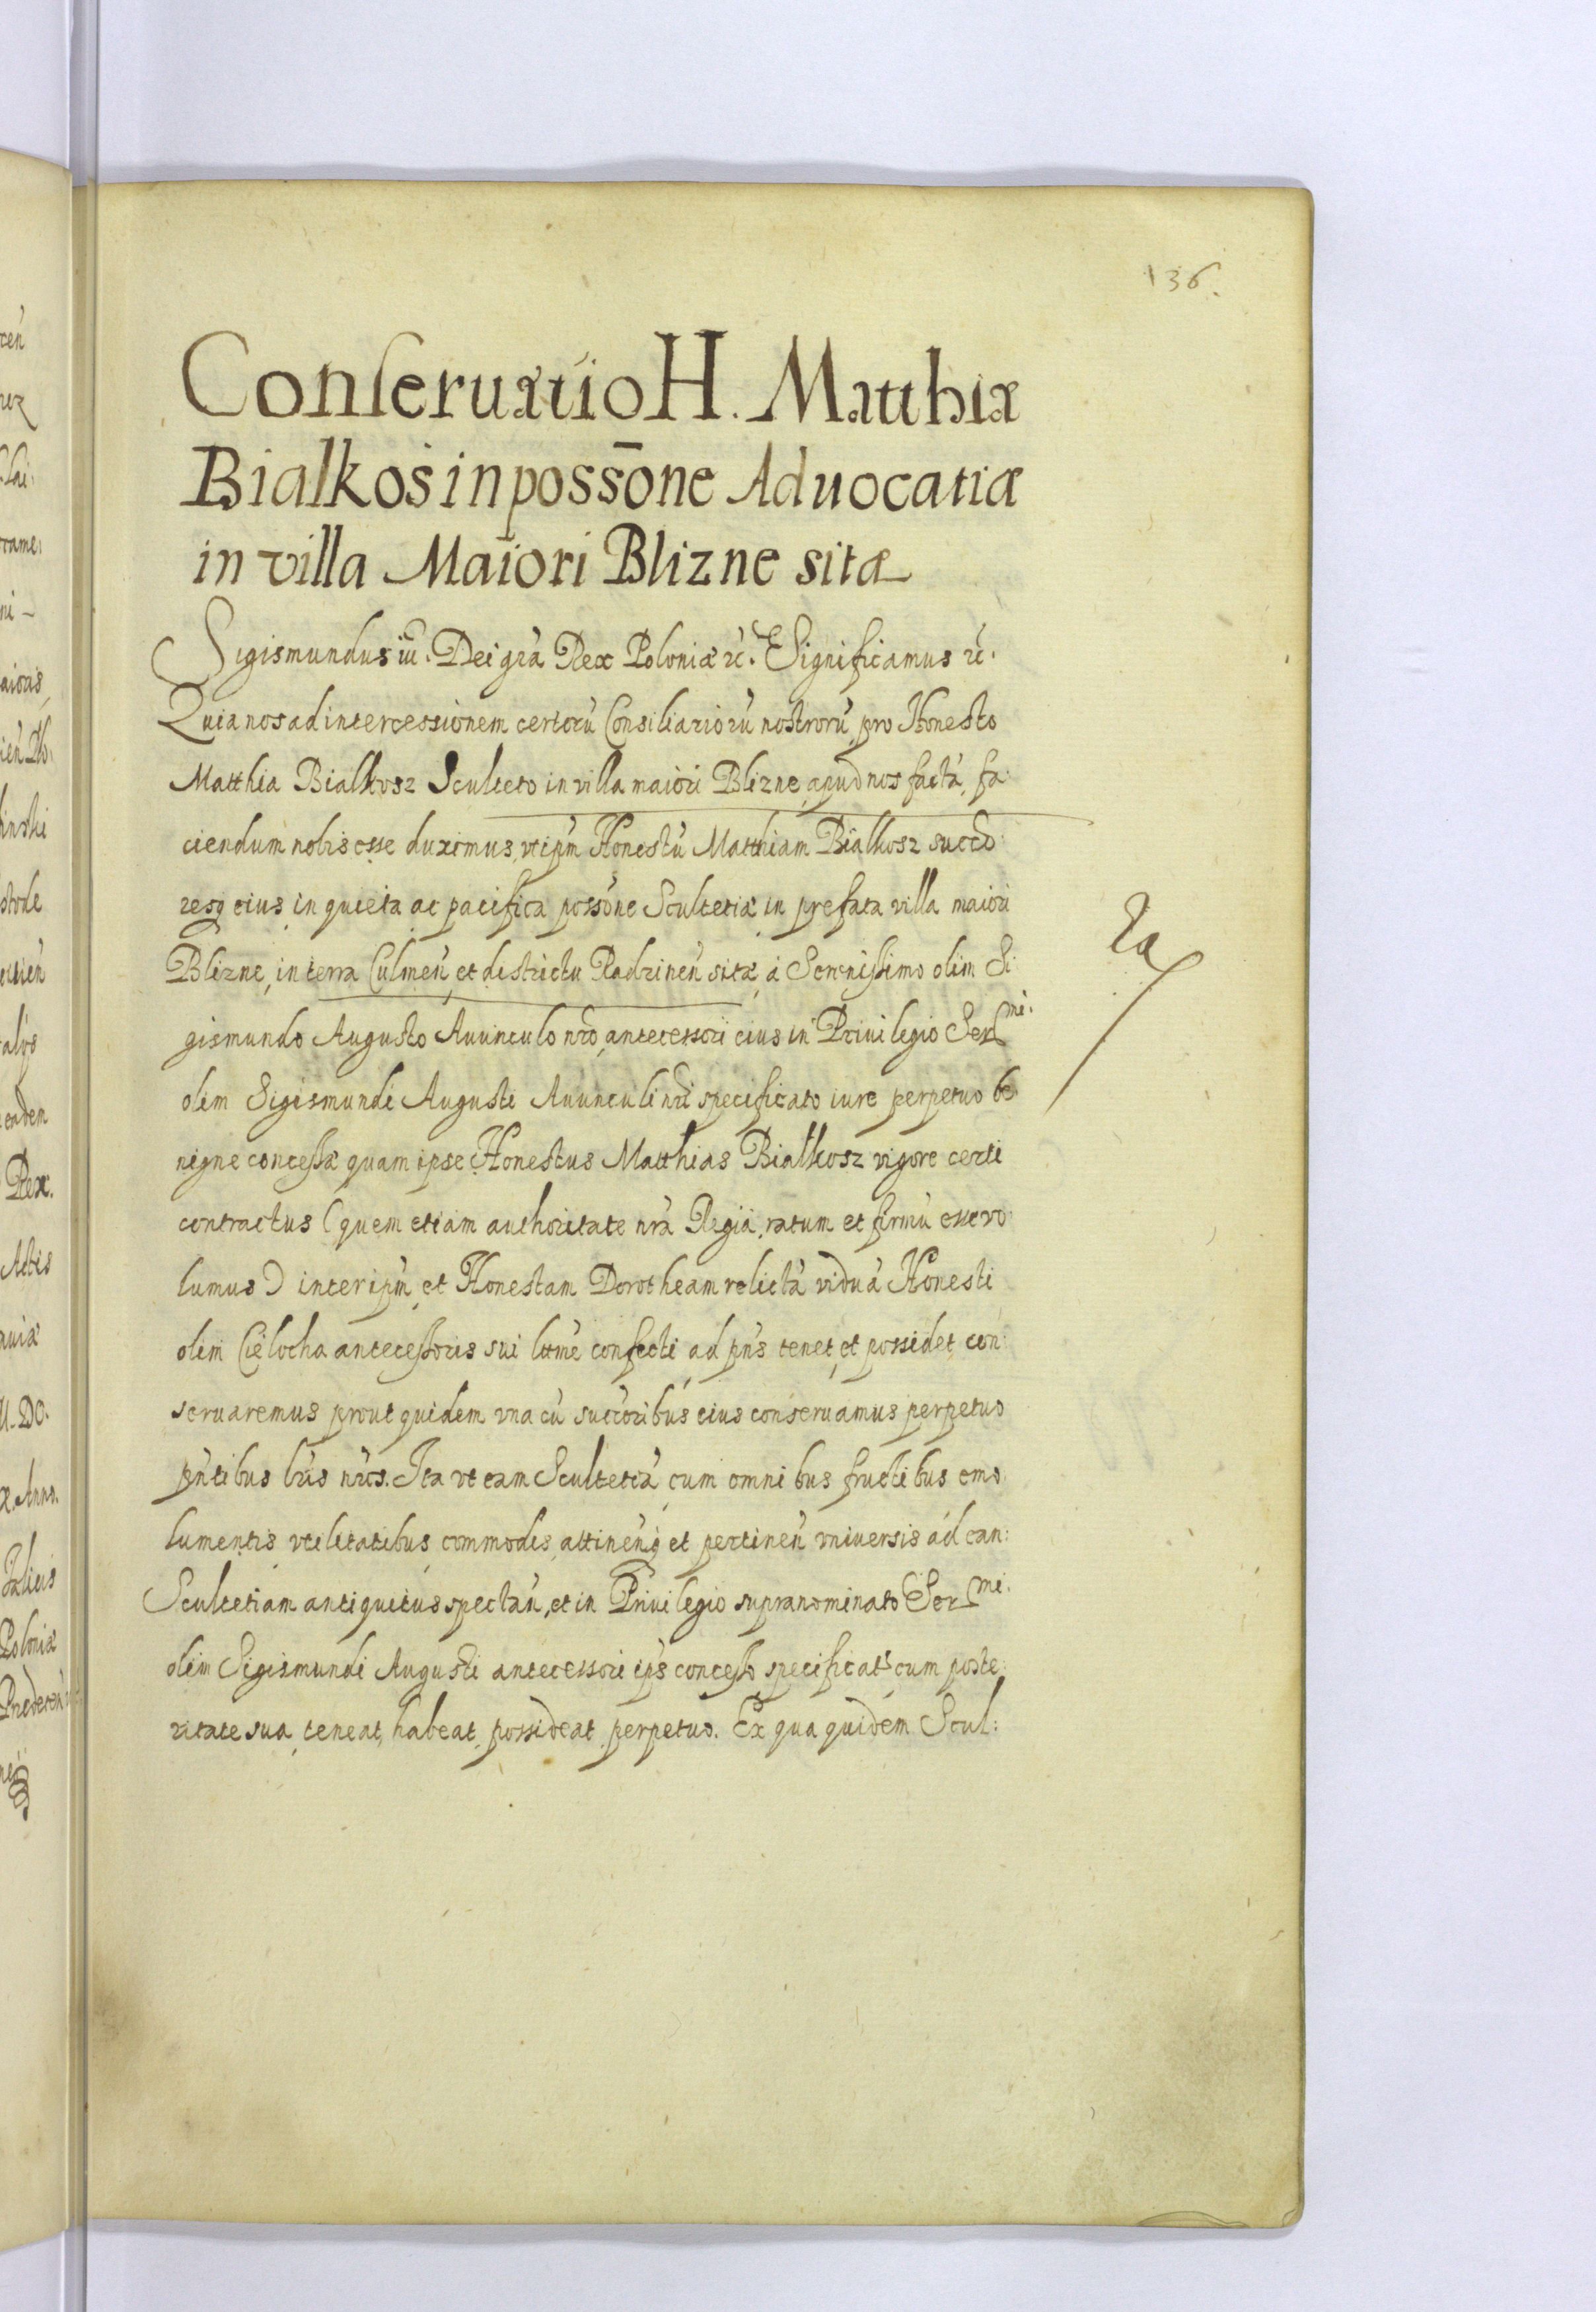 136.
Conseruatio H. Matthiæ
Bialkos in possõne Aduocatiæ
in villa Maiori Blizne sitæ
Sigismundus iii. Dei grã Rex Poloniæ ꝛc. Significamus ꝛc.
Quia nos ad intercessionem certorũ Consiliariorũ nostrorũ, pro Honesto
Matthia Bialkosz Sculteto in villa maiori Blizne, apud nos factã, fa:
ciendum nobis esse duximus, vt ipm̃ Honestũ Matthiam Bialkosz succo:
resq̃ eius, in quieta ac pacifica possõne Scultetiæ in prefata villa maiori
Blizne, in terra Culmeñ, et districtu Radzineñ sitæ, á Serenissimo olim Si:
gismundo Augusto Auunculo nrõ, antecessori eius in Priuilegio Ser mi.
olim Sigismundi Augusti Auunculi nrĩ specificato iure perpetuo be:
nigne concessæ, quam ipse Honestus Matthias Bialkosz vigore certi
contractus (quem etiam authoritate nrã Regiã, ratum et firmũ esse vo:
lumus) inter ipm̃, et Honestam Dorotheam relictã viduã Honesti
olim Cielocha antecessoris sui lttme confecti, ad pñs tenet, et possidet, con:
seruaremus, prout quidem vna cũ succoribus eius conseruamus perpetuo
pñtibus lrĩs nrĩs. Ita vt eam Scultetiã, cum omnibus fructibus emo:
lumentis, vtilitatibus, commodis, attineñq̃ et pertineñ vniuersis ad ean:
Scultetiam antiquitus spectañ, et in Priuilegio supranominato Ser mi.
olim Sigismundi Augusti antecessori ips concesso, specificat, cum poste:
ritate sua, teneat, habeat, possideat, perpetuo. Ex qua quidem Scul: